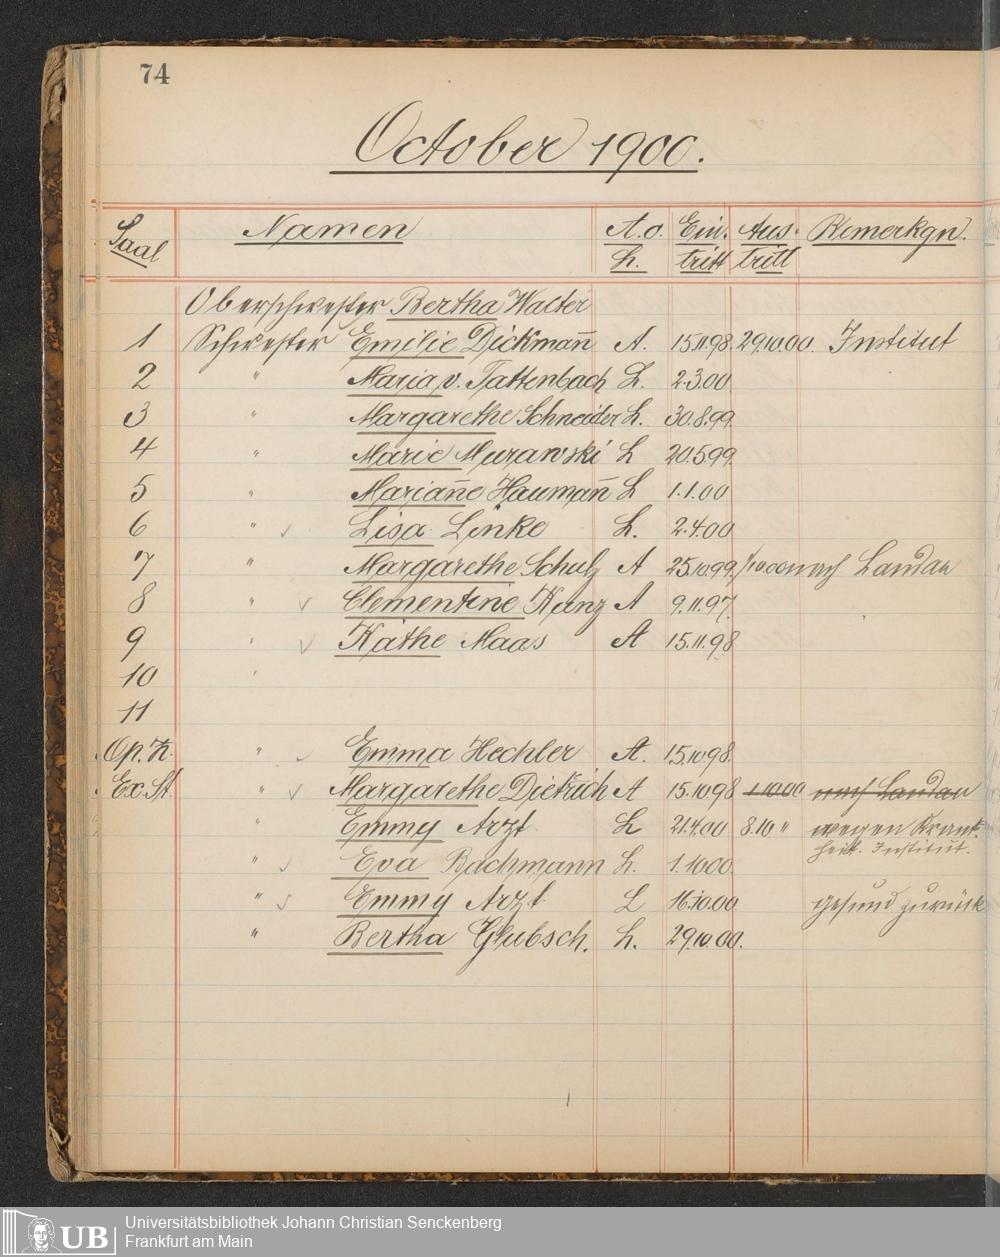 74
October 1900.
Saal Namen A. o. L. Ein-tritt Aus-tritt Bemerkgn.
Oberschwester Bertha Walter
1 Schwester Emilie Dickman̄ A. 15.11.98. 29.10.00. Institut
2 " Maria v. Tattenbach L. 2.3.00.
3 " Margarethe Schneider L. 30.8.99.
4 " Marie Murawski L 20.5.99.
5 " Marian̄e Hauman̄ L 1.1.00
6 " ✓ Lisa Linke L. 2.4.00
7 " Margarethe Schulz A 25.10.99. 1/10 00 nach Landau
8 " ✓ Clementine Kunz A 9.11.97.
9 " ✓ Käthe Maas A 15.11.98
10 "
11
Op. Z. " ✓ Emma Hechler A. 15.10.98.
Ex. St. " ✓ Margarethe Dietrich A 15.10.98 1.10.00 nach Landau
" Emmy Arzt L 21.4.00 8.10 " wegen Krank-
heit. Institut.
" ✓ Eva Bachmann L. 1.10.00.
" ✓ Emmy Arzt L 16.10.00 gesund zurück
" Bertha Glubsch. L. 29.10.00.
UB
Universitätsbibliothek Johann Christian Senckenberg
Frankfurt am Main